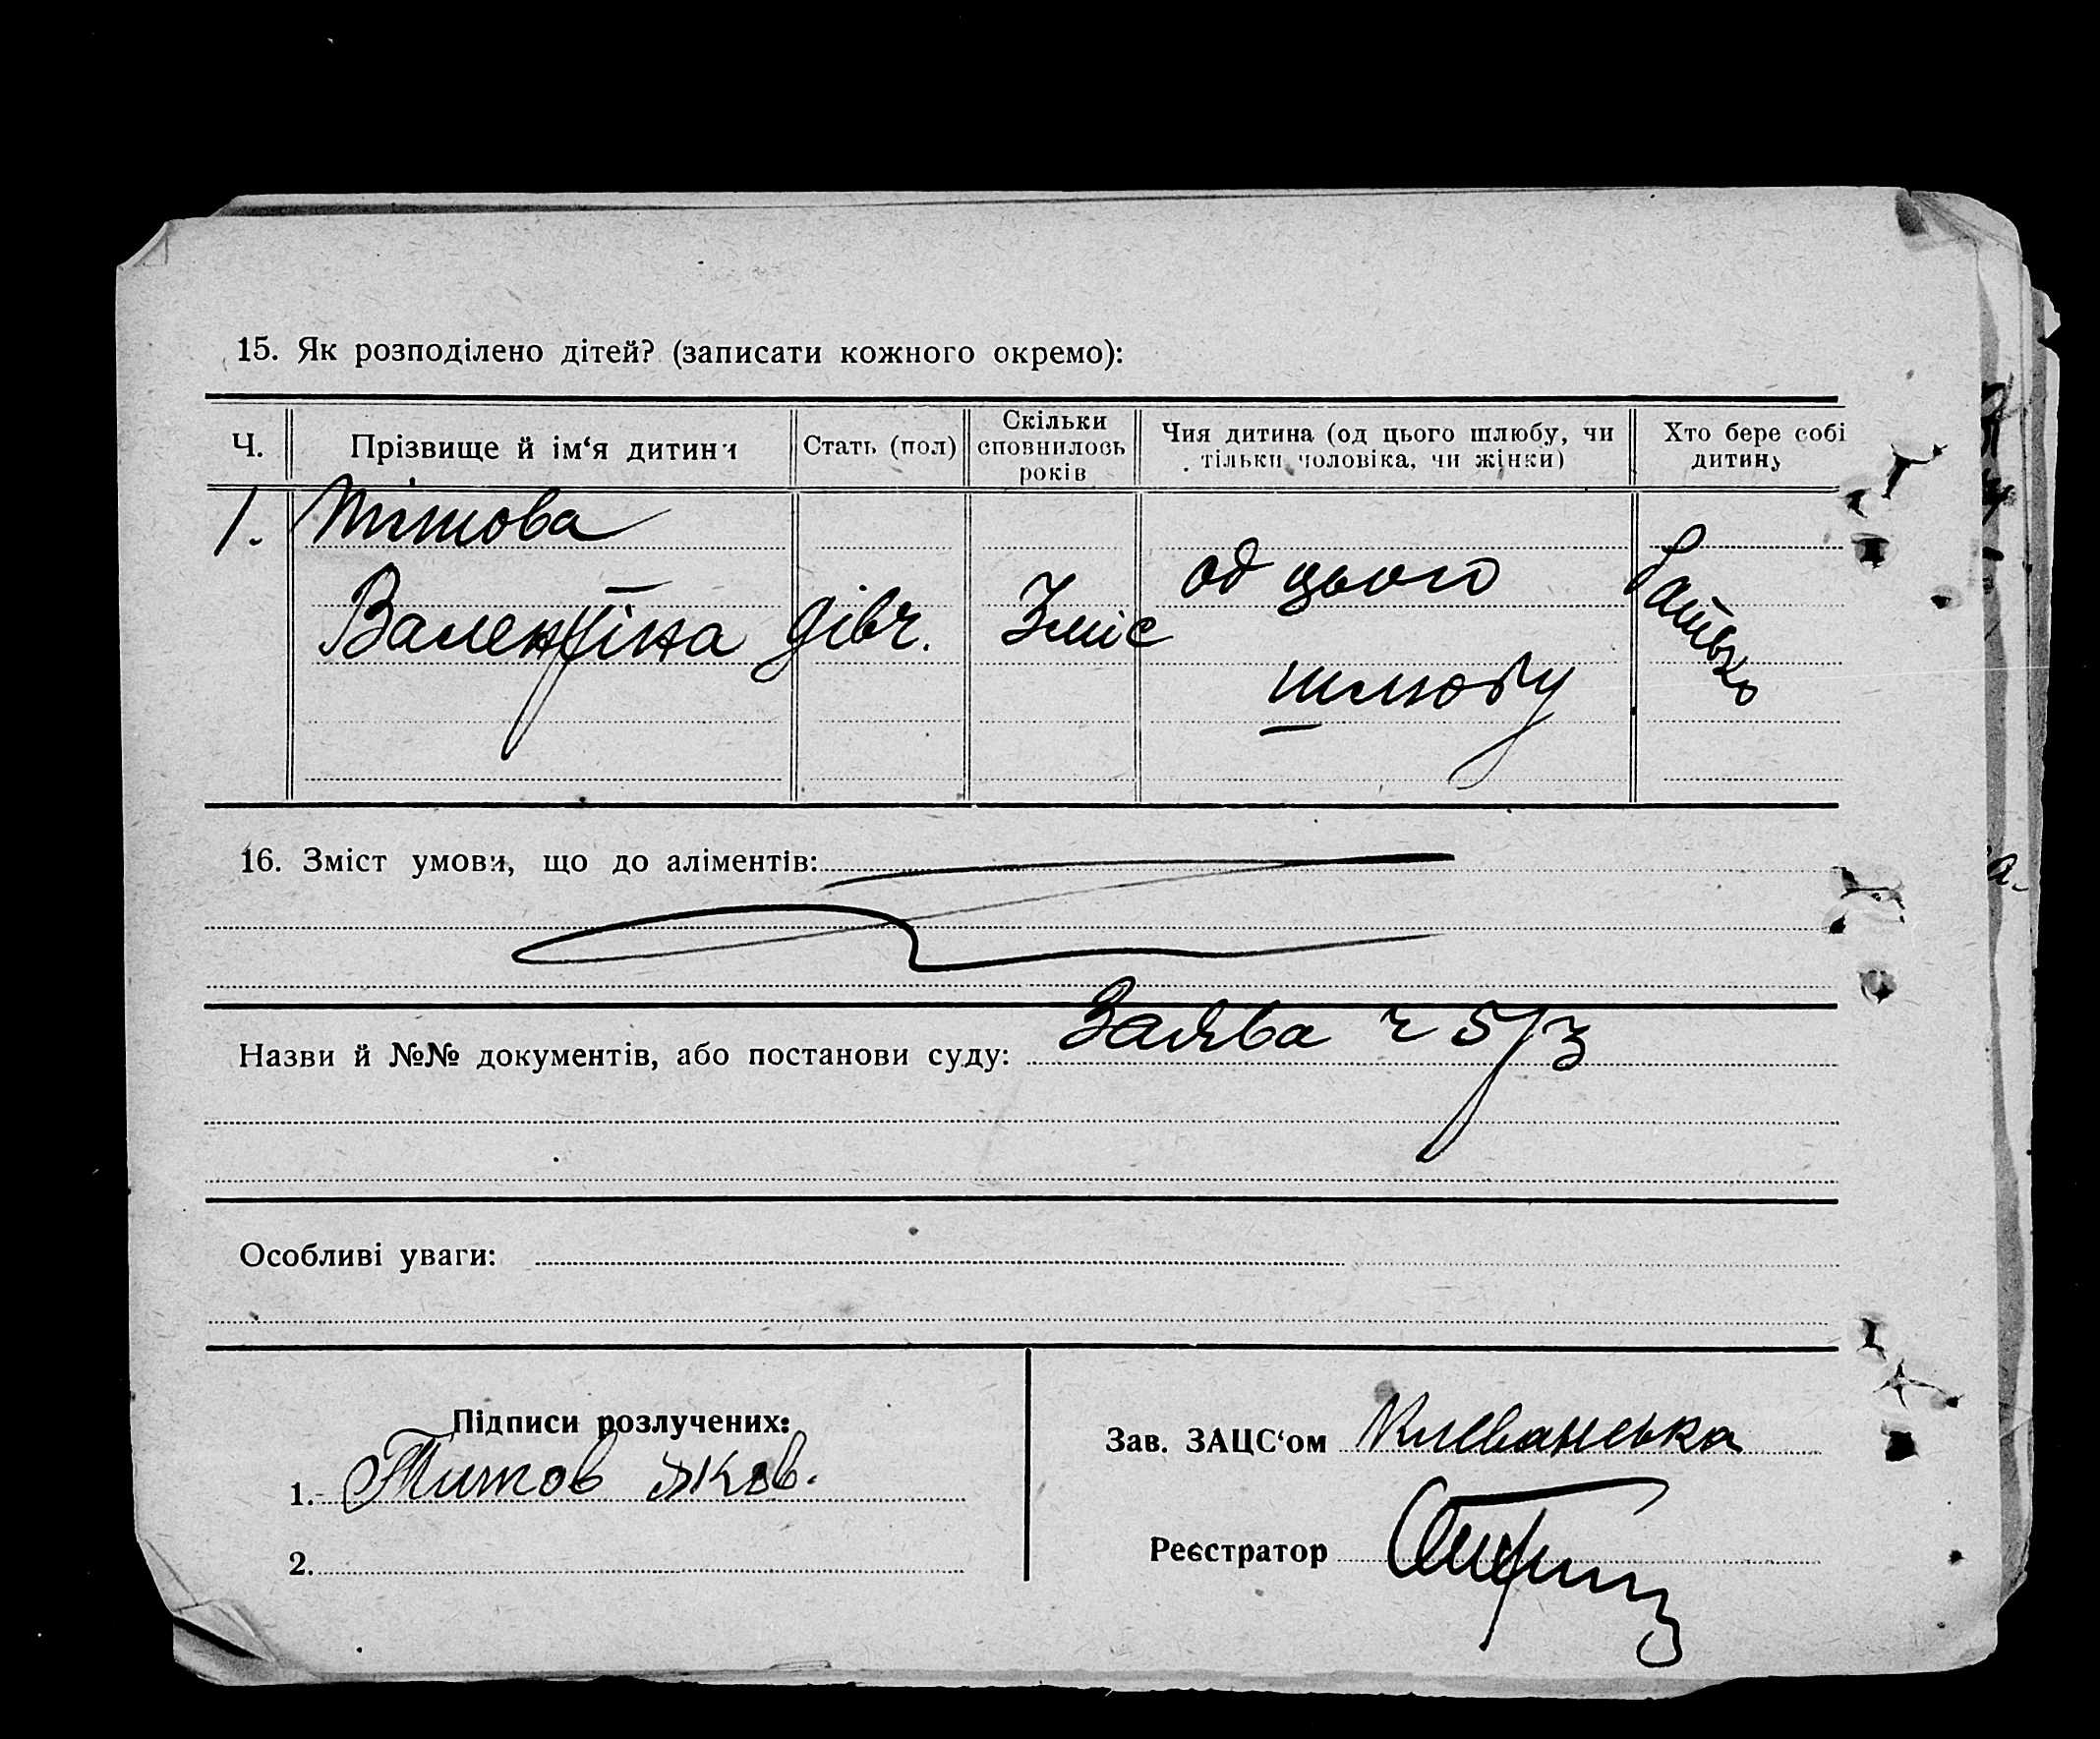 15. Як розподілено дітей? (записати кожного окремо):
Ч. Прізвище й ім‘я дитини Стать (пол) Скільки сповнилось років Чия дитина (од цього шлюбу, чи тільки чоловіка, чи жінки) Хто бере собі дитину
1. Титова
Валентіна дівч. 3 міс од цього шлюбу батько
16. Зміст умови, що до аліментів:
Назви й №№ документів, або постанови суду: Заява ч 5/3
Особливі уваги:
Підписи розлучених:
1. Титов Яков.
2.
Зав. ЗАЦС‘ом Клеванська
Реєстратор